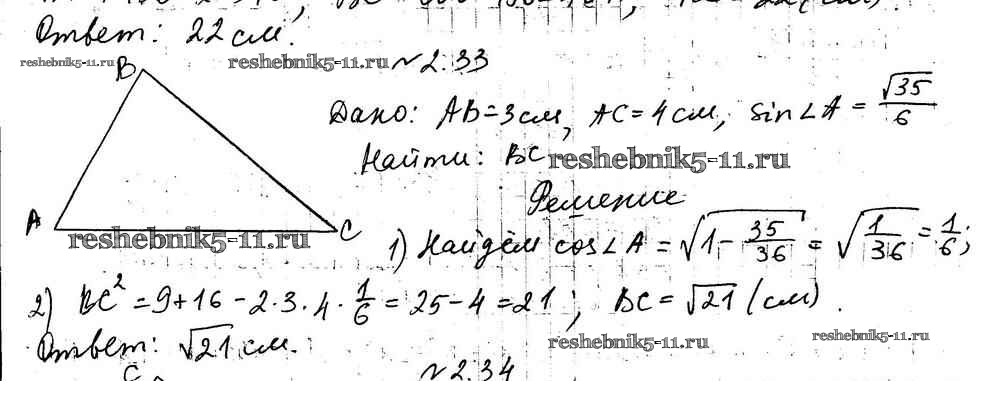 Ответ: 22 см.
reshebnik5-11.ru reshebnik5-11.ru №2.33
B
Дано: AB=3см, AC=4см, sin∠A = √35/6
Найти: BC reshebnik5-11.ru
Решение
A C
reshebnik5-11.ru
1) Найдём cos∠A = √(1 - 35/36) = √(1/36) = 1/6;
2) BC² = 9+16-2·3·4·1/6 = 25-4=21; BC = √21 (см).
Ответ: √21 см. reshebnik5-11.ru reshebnik5-11.ru
C №2.34